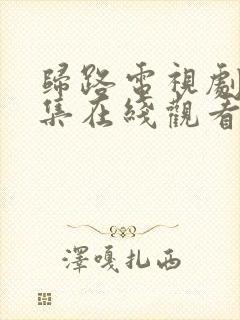 歸路電視劇
集在綫觀看
澤嘎扎西